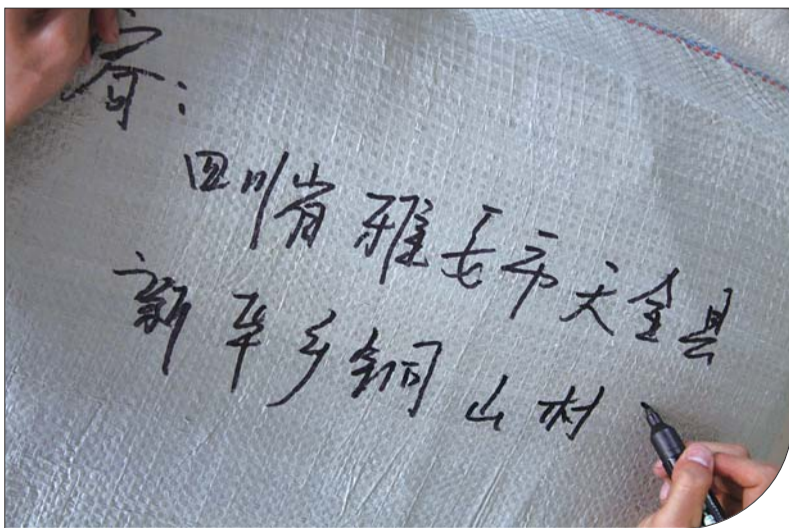 寄:
四川省雅安市天全县
新华乡铜山村